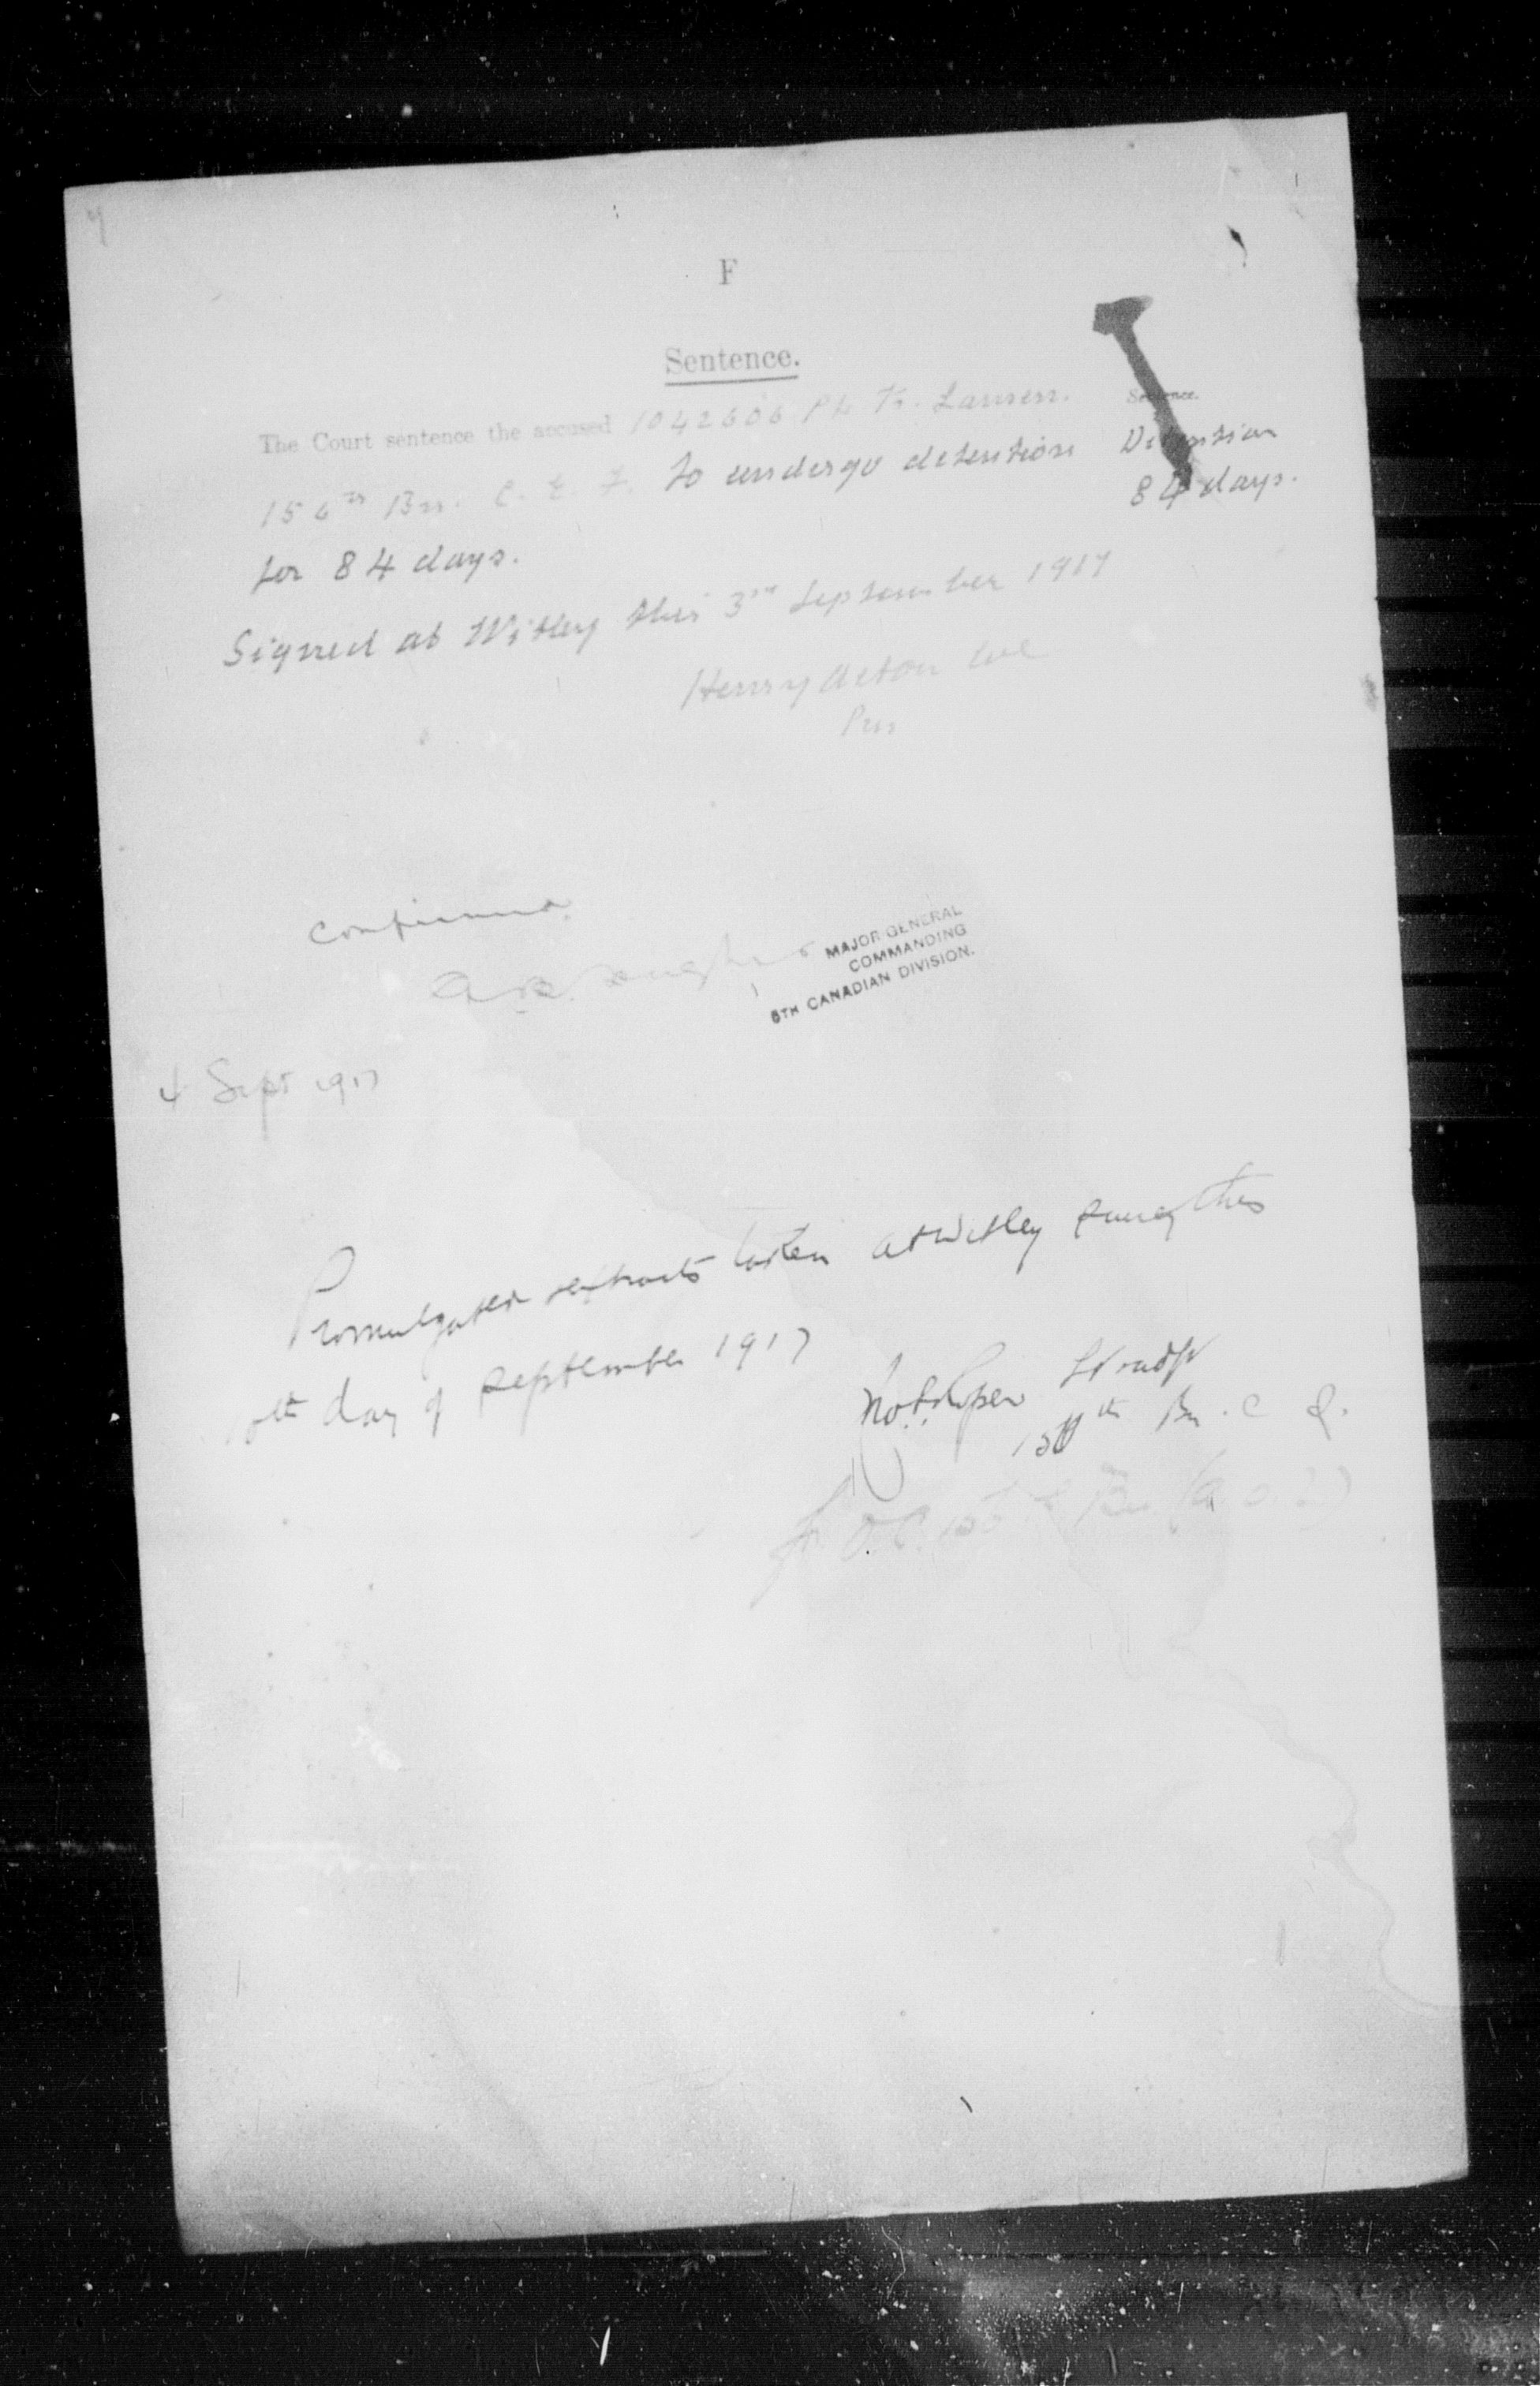 F
Sentence.
The Court sentence the accused 1042606 Pte
Sentence.
156th Bn. C. E. F. to undergo detention
Detention
84 days.
for 84 days.
Signed at Witley this 3rd September 1917
Henry Acton Col
Pres
Confirmed
MAJOR-GENERAL
COMMANDING
5TH CANADIAN DIVISION.
4 Sept 1917
Promulgated extracts taken at Witley Surrey this
day of September 1917
Bn. C
O.C. Bn